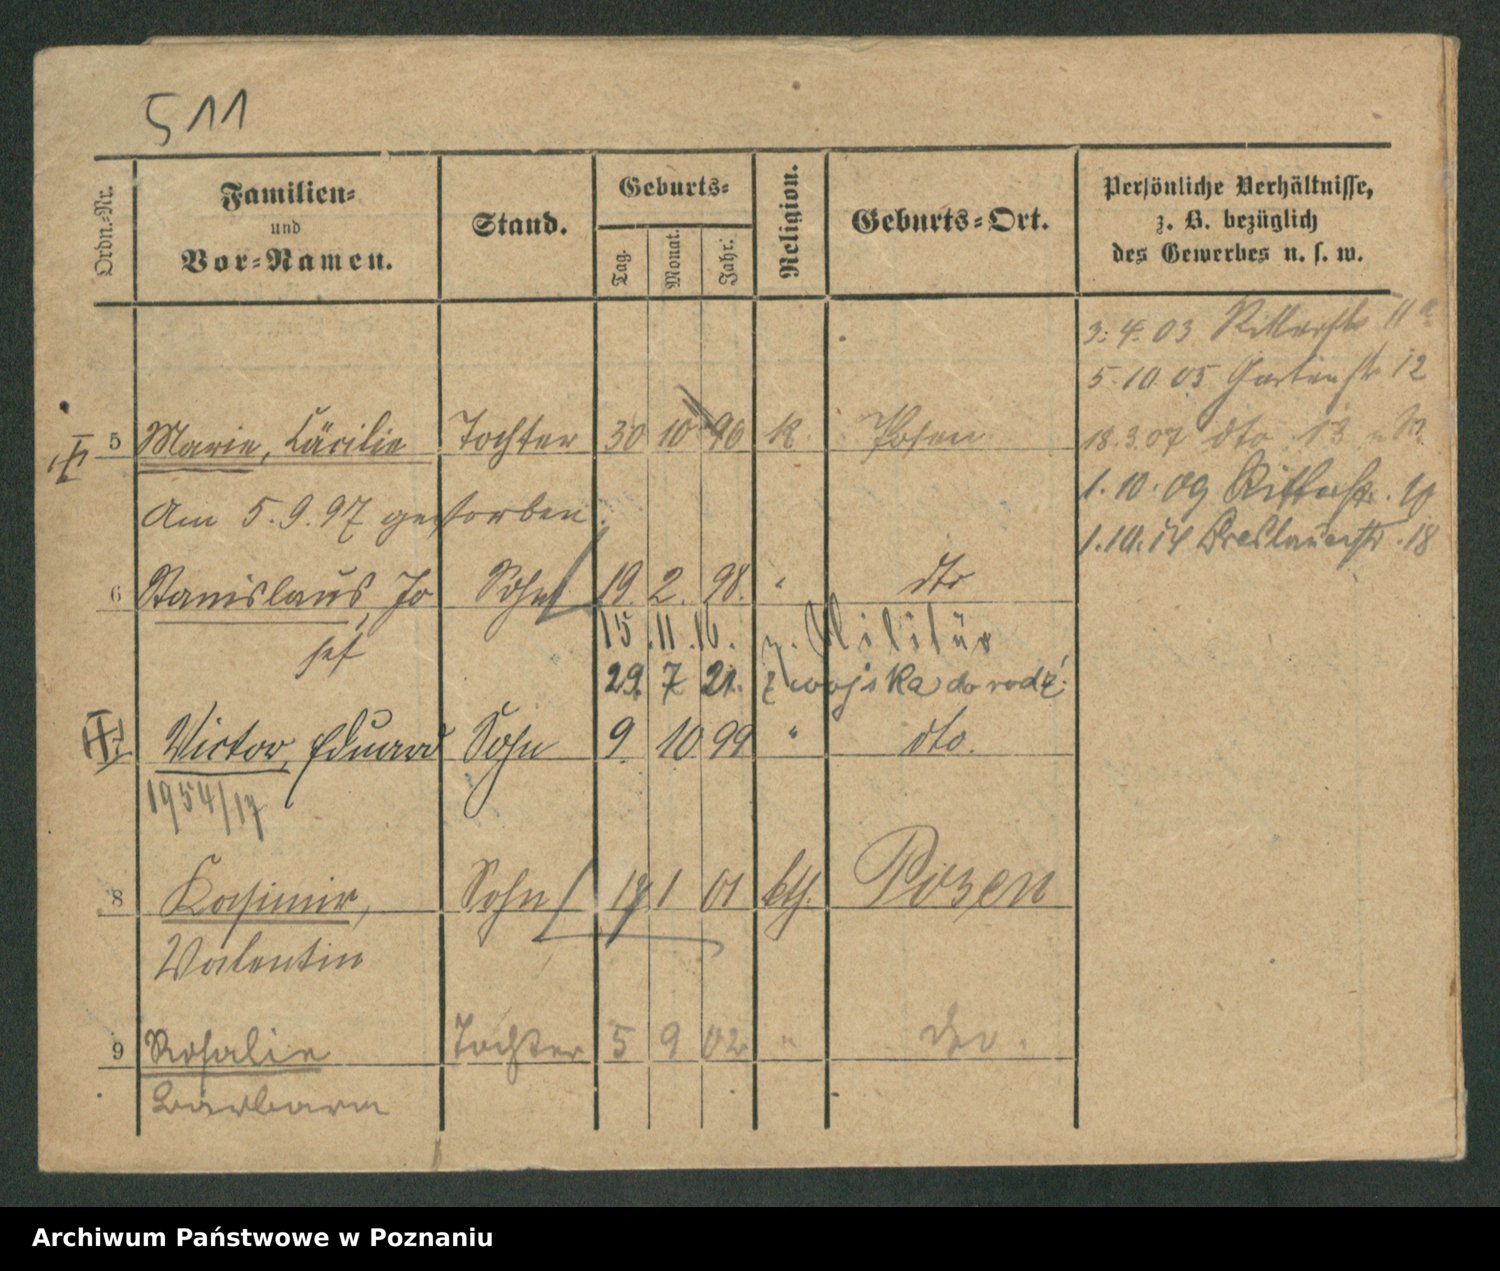 511
Ordn.-Nr.
Familien-
und
Vor-Namen.
Stand.
Geburts-
Tag.
Monat.
Jahr.
Religion.
Geburts-Ort.
Persönliche Verhältnisse,
z. B. bezüglich
des Gewerbes u. s. w.
3. 4. 03 Ritterstr 11a
5. 10. 05 Gartenstr 12
5 Marie, Cäcilie Tochter 30 10 96 k. Posen
18. 3. 07 dto 13
1. 10. 09 Ritterstr.
Am 5. 9. 97 gestorben.
1. 10. 14 Breslauerstr. 18
6 Stanislaus, Jo Sohn 19. 2. 98. " dto
sef
15. 11. 16. z. Militär
29. 7 21. z wojska do rodz.
Victor, Eduard Sohn 9. 10 99 " dto.
1954/17
8 Kasimir, Sohn 1 01 kth. Posen
Valentin
9 Rosalie Tochter 5 9 02 " dto.
Barbara
Archiwum Państwowe w Poznaniu